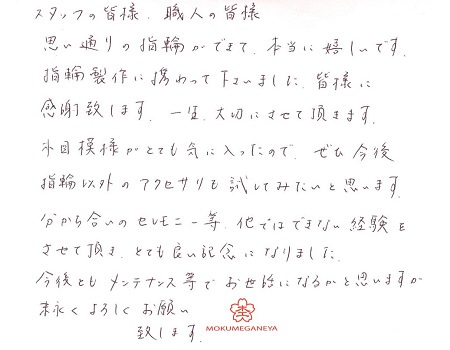 スタッフの皆様、職人の皆様
思い通りの指輪ができて、本当に嬉しいです。
指輪製作に携わって下さいました皆様に
感謝致します。一生、大切にさせて頂きます。
木目模様がとても気に入ったので、ぜひ今後
指輪以外のアクセサリも試してみたいと思います。
分かち合いのセレモニー等、他ではできない経験を
させて頂き、とても良い記念になりました。
今後ともメンテナンス等でお世話になるかと思いますが
末永くよろしくお願い
致します。
MOKUMEGANEYA